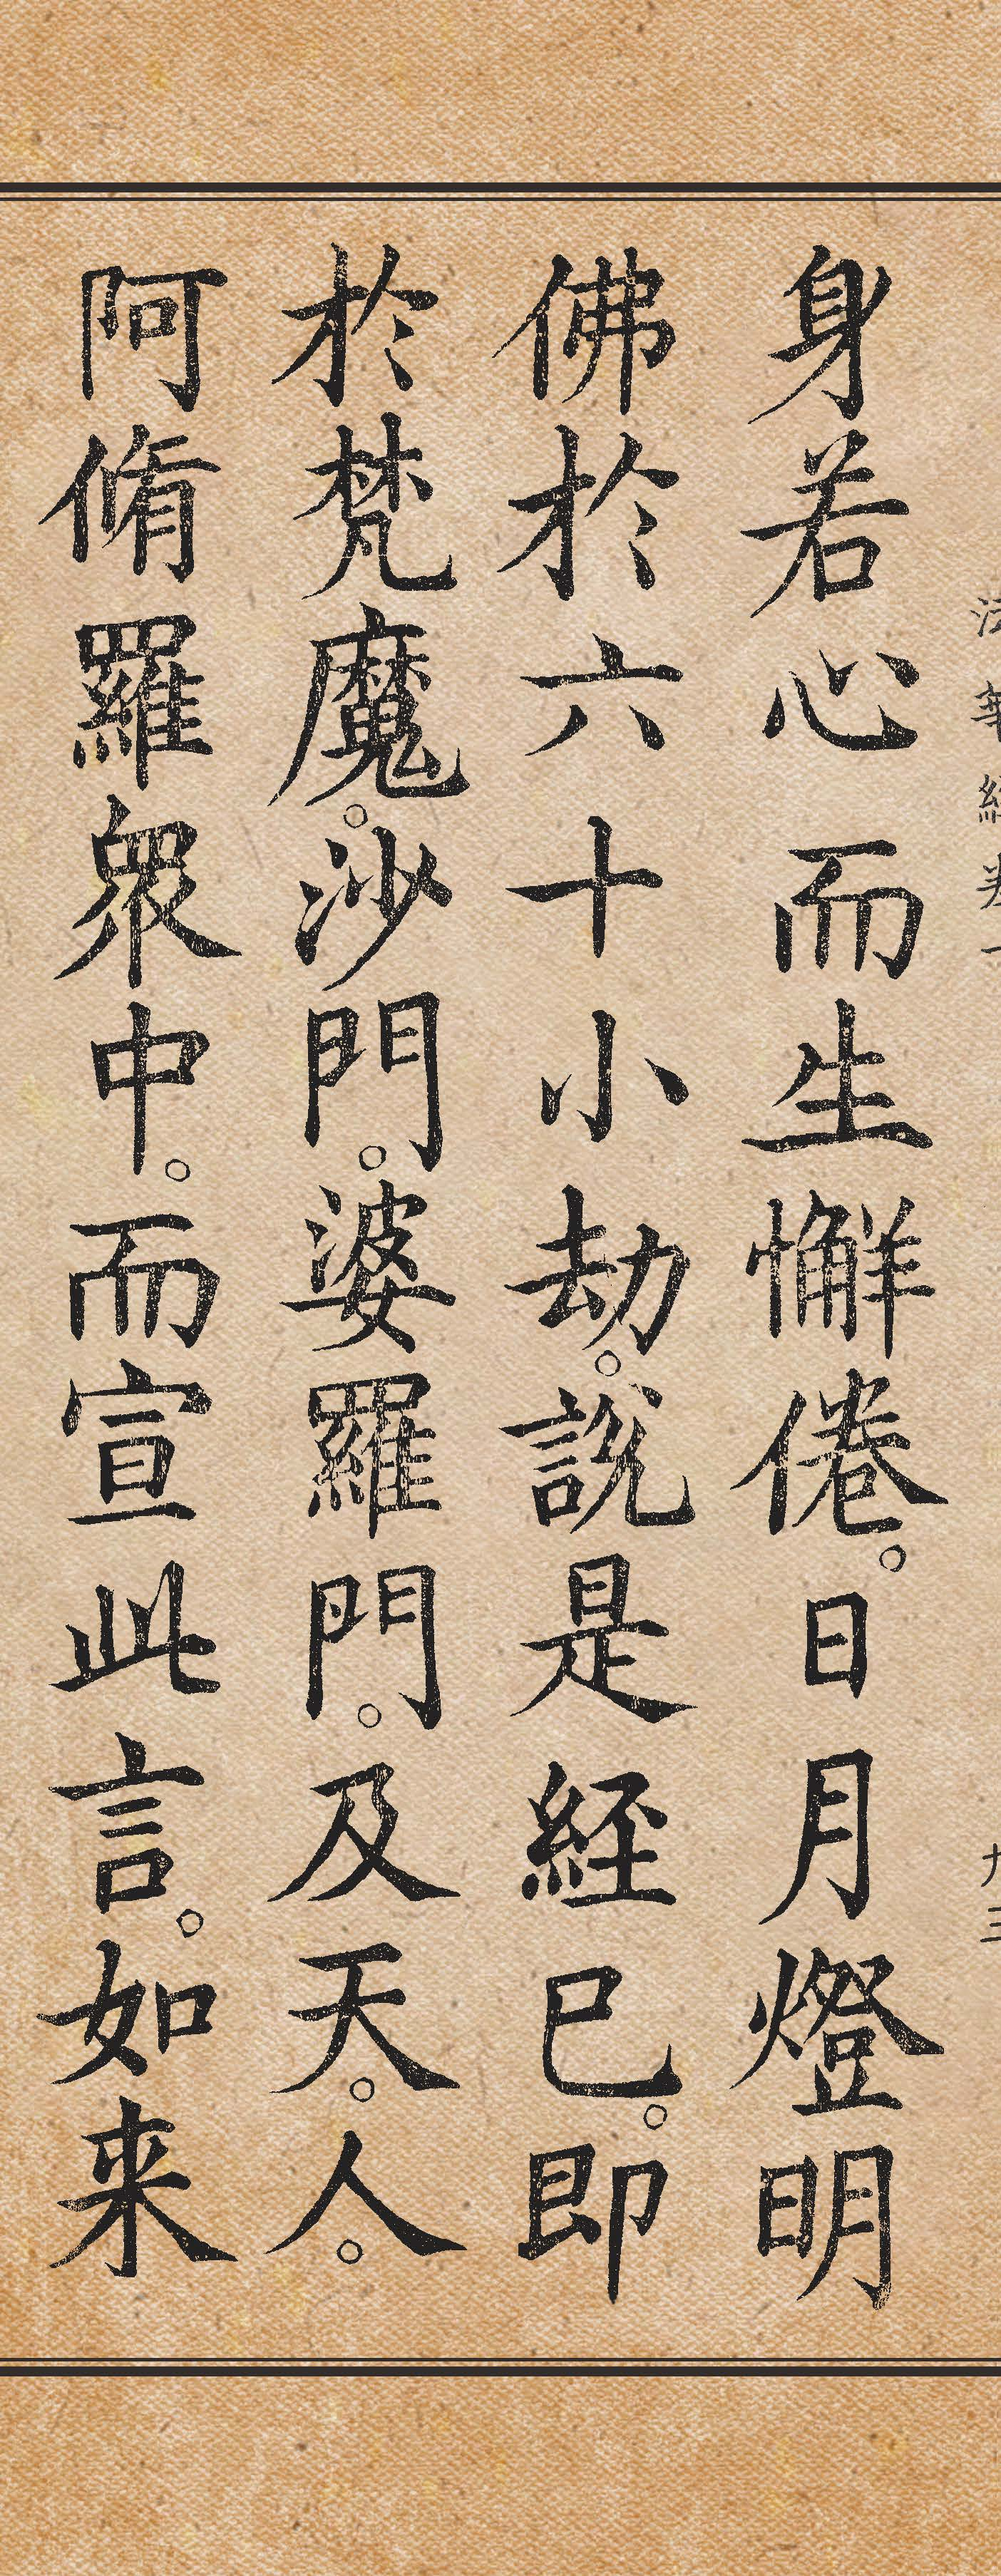 身若心而生懈倦。日月燈明
佛於六十小劫。說是経已。即
於梵魔。沙門。婆羅門。及天。人。
阿脩羅眾中。而宣此言。如来